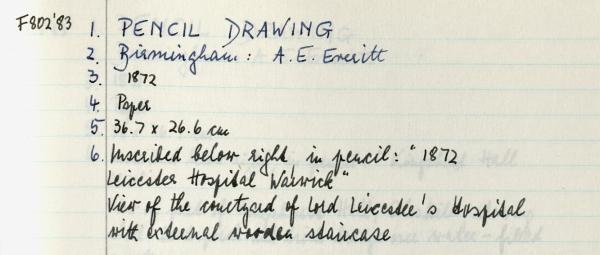 F802'83 1. PENCIL DRAWING
2. Birmingham: A.E. Everitt
3. 1872
4. Paper
5. 36.7 x 26.6 cm
6. Inscribed below right in pencil: "1872
Leicester Hospital Warwick"
View of the courtyard of Lord Leicester's Hospital
with external wooden staircase